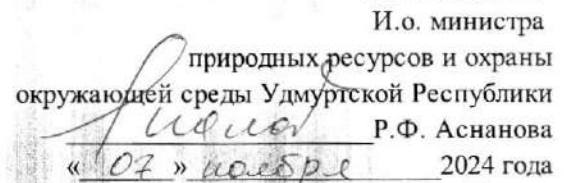 И.о. министра
природных ресурсов и охраны
окружающей среды Удмуртской Республики
Р.Ф. Аснанова
« 07 » ноября 2024 года